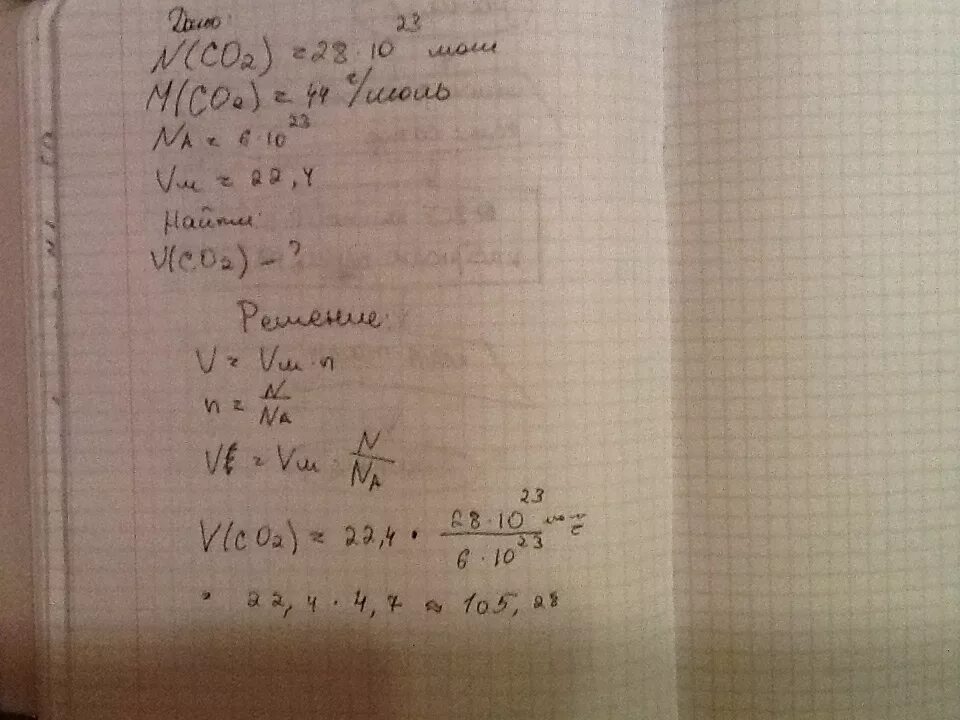 Дано:
N(CO2) = 28 · 10^23 мол
M(CO2) = 44 г/моль
NA = 6 · 10^23
Vм = 22,4
Найти:
V(CO2) - ?
Решение:
V = Vм · n
n = N/NA
V = Vм · N/NA
V(CO2) = 22,4 · 28 · 10^23/6 · 10^23 =
= 22,4 · 4,7 ≈ 105,28